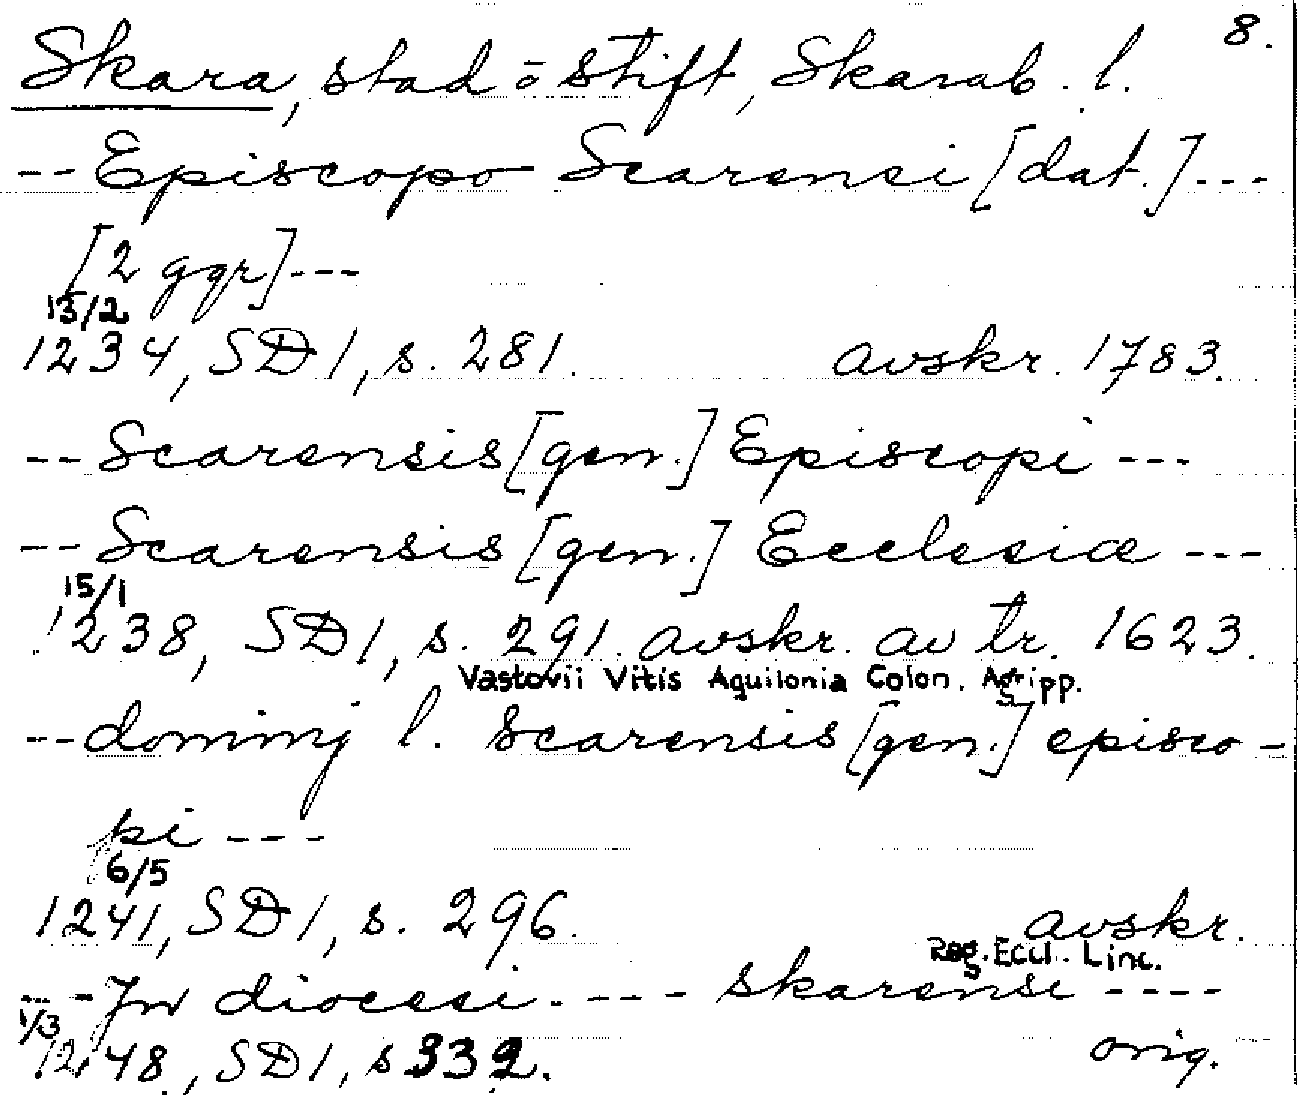 8.
Skara, stad o stift, Skarab. l.
-- Episcopo Scarensi [dat.] ---
[2 ggr] ---
13/2
1234, SD 1, s. 281. avskr. 1783.
-- Scarensis [gen.] Episcopi ---
-- Scarensis [gen.] Ecclesiæ ---
15/1
1238, SD 1, s. 291. avskr. av tr. 1623.
Vastovii Vitis Aquilonia Colon. Agripp.
-- dominj l. Scarensis [gen.] episco-
pi ---
6/5
1241, SD 1, s. 296. avskr.
Reg. Eccl. Linc.
-- - Jn diocesi. ---- skarensi ----
1/3
1248, SD 1, s 332. orig.